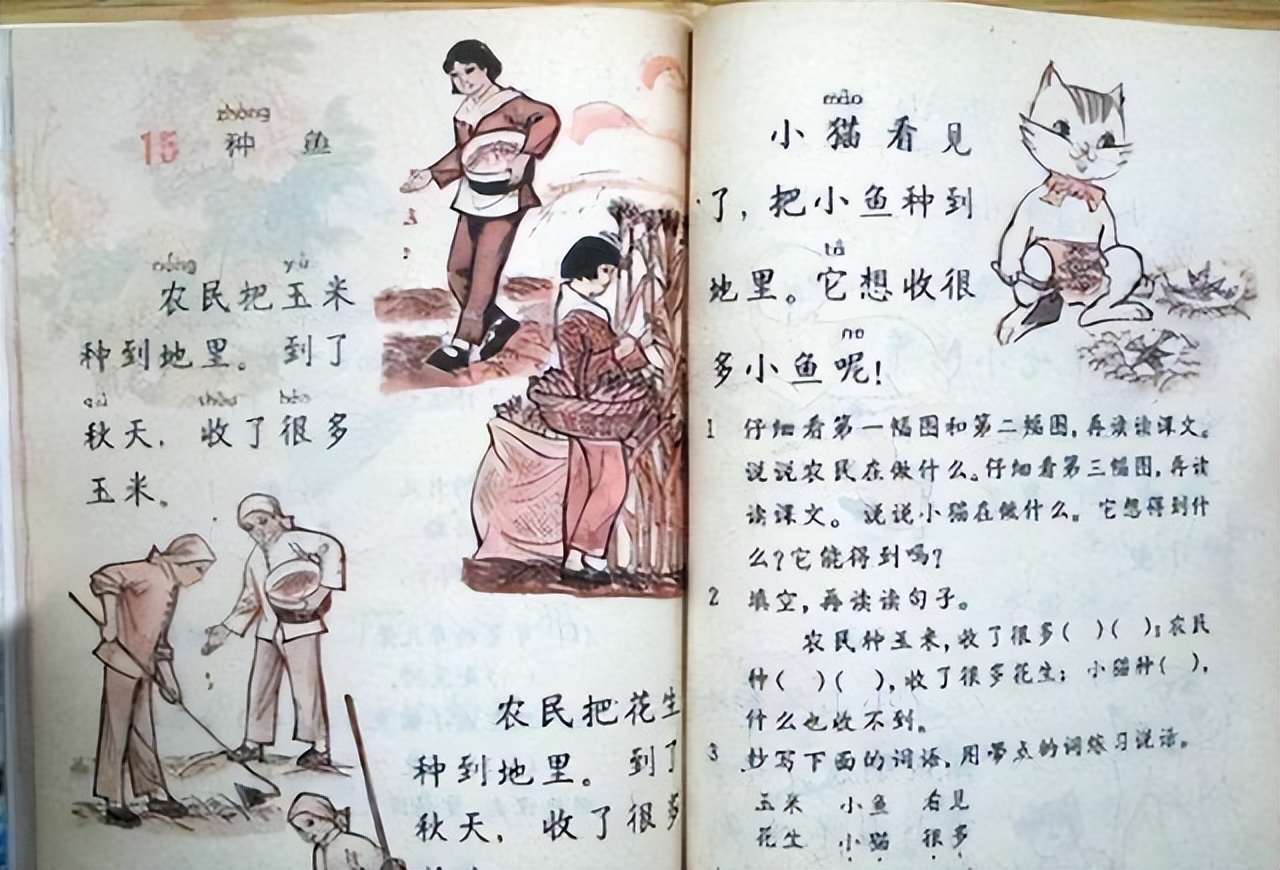 zhòng
15 种 鱼
nóng yù
农民把玉米
种到地里。到了
qiū shōu hěn
秋天，收了很多
玉米。
农民把花生
种到地里。到了
秋天，收了很多
māo
小猫看见
了，把小鱼种到
tā
地里。它想收很
ne
多小鱼呢！
1 仔细看第一幅图和第二幅图，再读读课文。
说说农民在做什么。仔细看第三幅图，再读
读课文。说说小猫在做什么。它想得到什
么？它能得到吗？
2 填空，再读读句子。
农民种玉米，收了很多( )( )；农民
种( )( )，收了很多花生；小猫种( )，
什么也收不到。
3 抄写下面的词语，用带点的词练习说话。
玉米 小鱼 看见
花生 小猫 很多